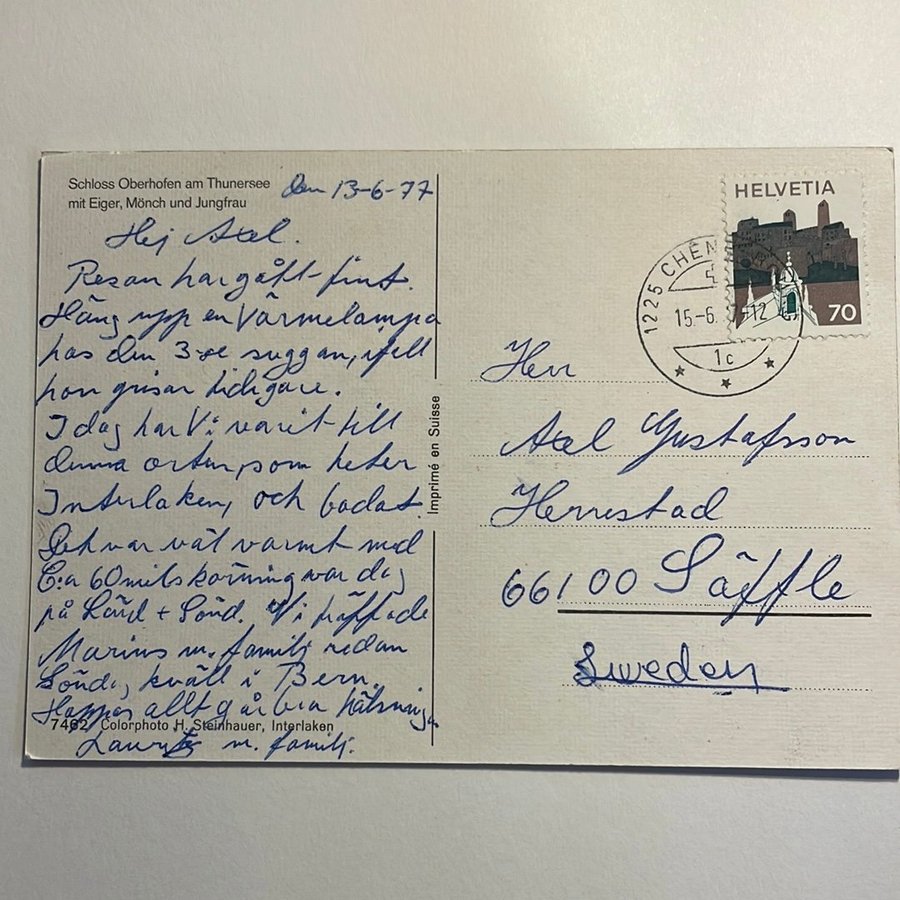 Schloss Oberhofen am Thunersee
mit Eiger, Mönch und Jungfrau
Den 13-6-77
Hej Axel.
Resan har gått fint.
Häng upp en Värmelampa
hos den 3-se suggan, ifall
hon grisar tidigare.
I dag har Vi varit till
denna orten, som heter
Interlaken, och badat.
Det var väl varmt med
C:a 60 mils körning var dag
på Lörd + Sönd. Vi träffade
Marius m. familj redan
Sönd, kväll i Bern.
Hoppas allt går bra hälsning
7462 Colorphoto H. Steinhauer, Interlaken
Lauritz m. familj.
Imprimé en Suisse
HELVETIA
70
1225 CHÊN
15-6. -12
1c
Herr
Axel Gustafsson
Herrestad
66100 Säffle
Sweden